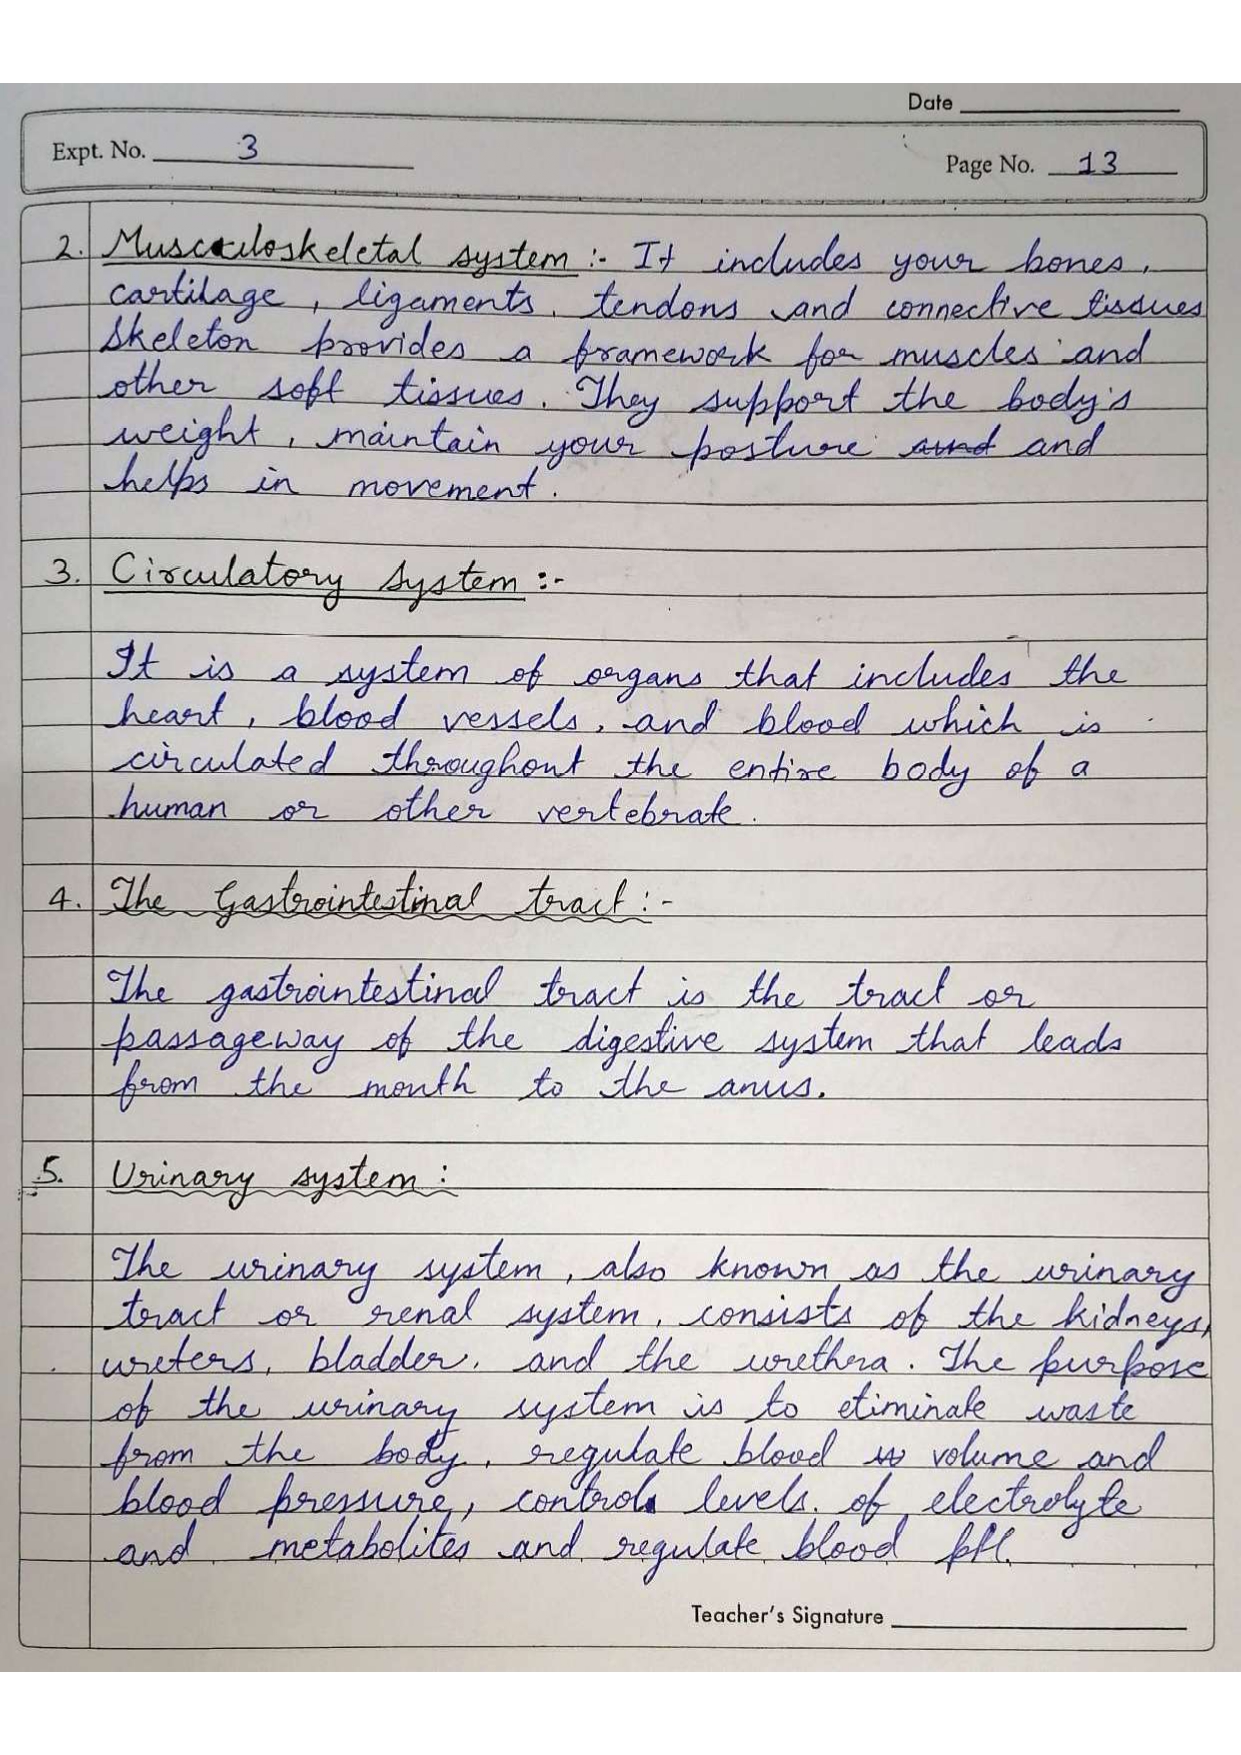 Date
Expt. No. 3
Page No. 13
2. Musculoskeletal system :- It includes your bones,
cartilage, ligaments, tendons and connective tissues
skeleton provides a framework for muscles and
other soft tissues. They support the body's
weight, maintain your posture and and
helps in movement.
3. Circulatory system :-
It is a system of organs that includes the
heart, blood vessels, and blood which is
circulated throughout the entire body of a
human or other vertebrate.
4. The Gastrointestinal tract :-
The gastrointestinal tract is the tract or
passageway of the digestive system that leads
from the mouth to the anus.
5. Urinary system :
The urinary system, also known as the urinary
tract or renal system, consists of the kidneys,
ureters, bladder, and the urethra. The purpose
of the urinary system is to etiminate waste
from the body, regulate blood volume and
blood pressure, control levels of electrolyte
and metabolites and regulate blood pH.
Teacher's Signature